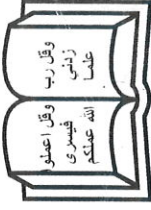 وقل رب
زدني
علما
وقل اعملوا
فسيرى
الله عملكم